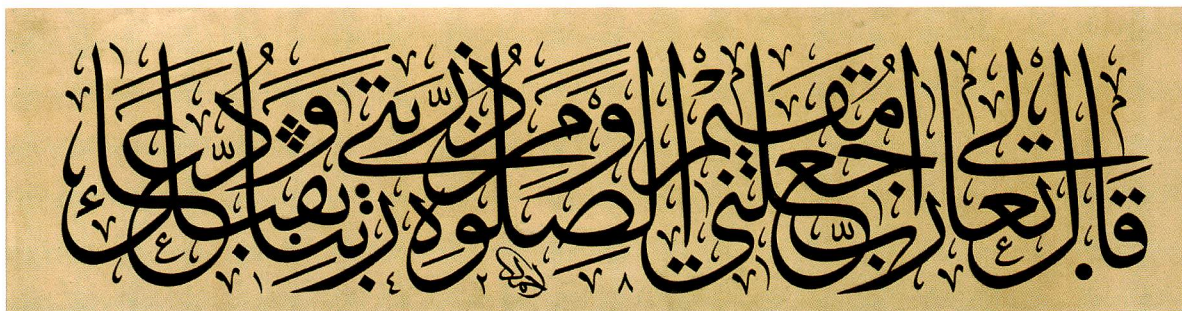 قَالَ تَعَالَى رَبِّ اجْعَلْنِي مُقِيمَ الصَّلٰوةِ وَمِنْ ذُرِّيَّتِي رَبَّنَا وَتَقَبَّلْ دُعَاءِ
١٤٢٨